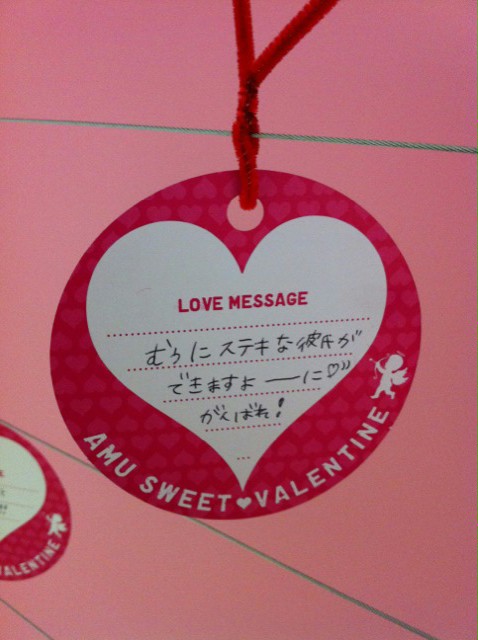 LOVE MESSAGE
むぅにステキな彼氏が
できますよーーに♡
がんばれ!
AMU SWEET♥VALENTINE
VALENTINE